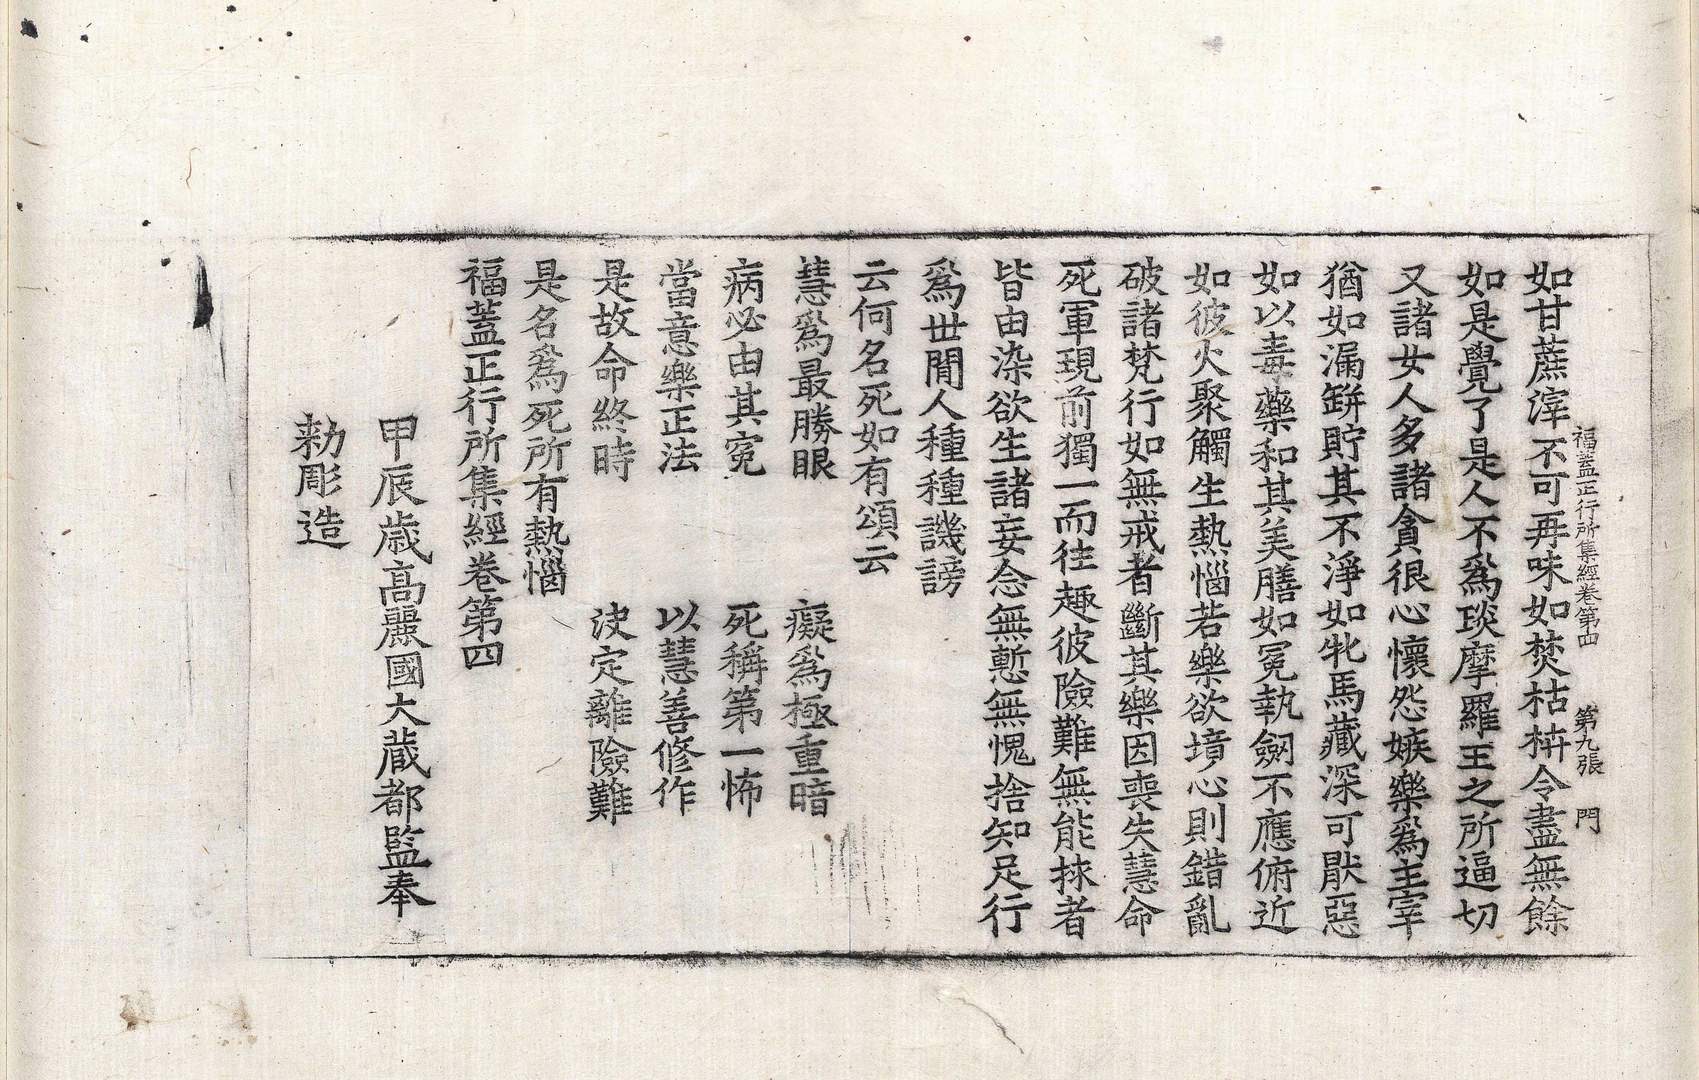 福蓋正行所集經卷第四　第九張　門
如甘蔗滓不可再味如焚枯𣐍令盡無餘
如是覺了是人不爲琰摩羅王之所逼切
又諸女人多諸貪很心懷怨嫉樂爲主宰
猶如漏缾貯其不淨如牝馬藏深可猒惡
如以毒藥和其美膳如冤執劒不應俯近
如彼火聚觸生熱惱若樂欲境心則錯亂
破諸梵行如無戒者斷其樂因喪失慧命
死軍現前獨一而往趣彼險難無能捄者
皆由染欲生諸妄念無慙無愧捨知足行
爲世間人種種譏謗
云何名死如有頌云
慧爲最勝眼　癡爲極重暗
病必由其冤　死稱第一怖
當意樂正法　以慧善修作
是故命終時　决定離險難
是名爲死所有熱惱
福蓋正行所集經卷第四
甲辰歳高麗國大藏都監奉
勑彫造